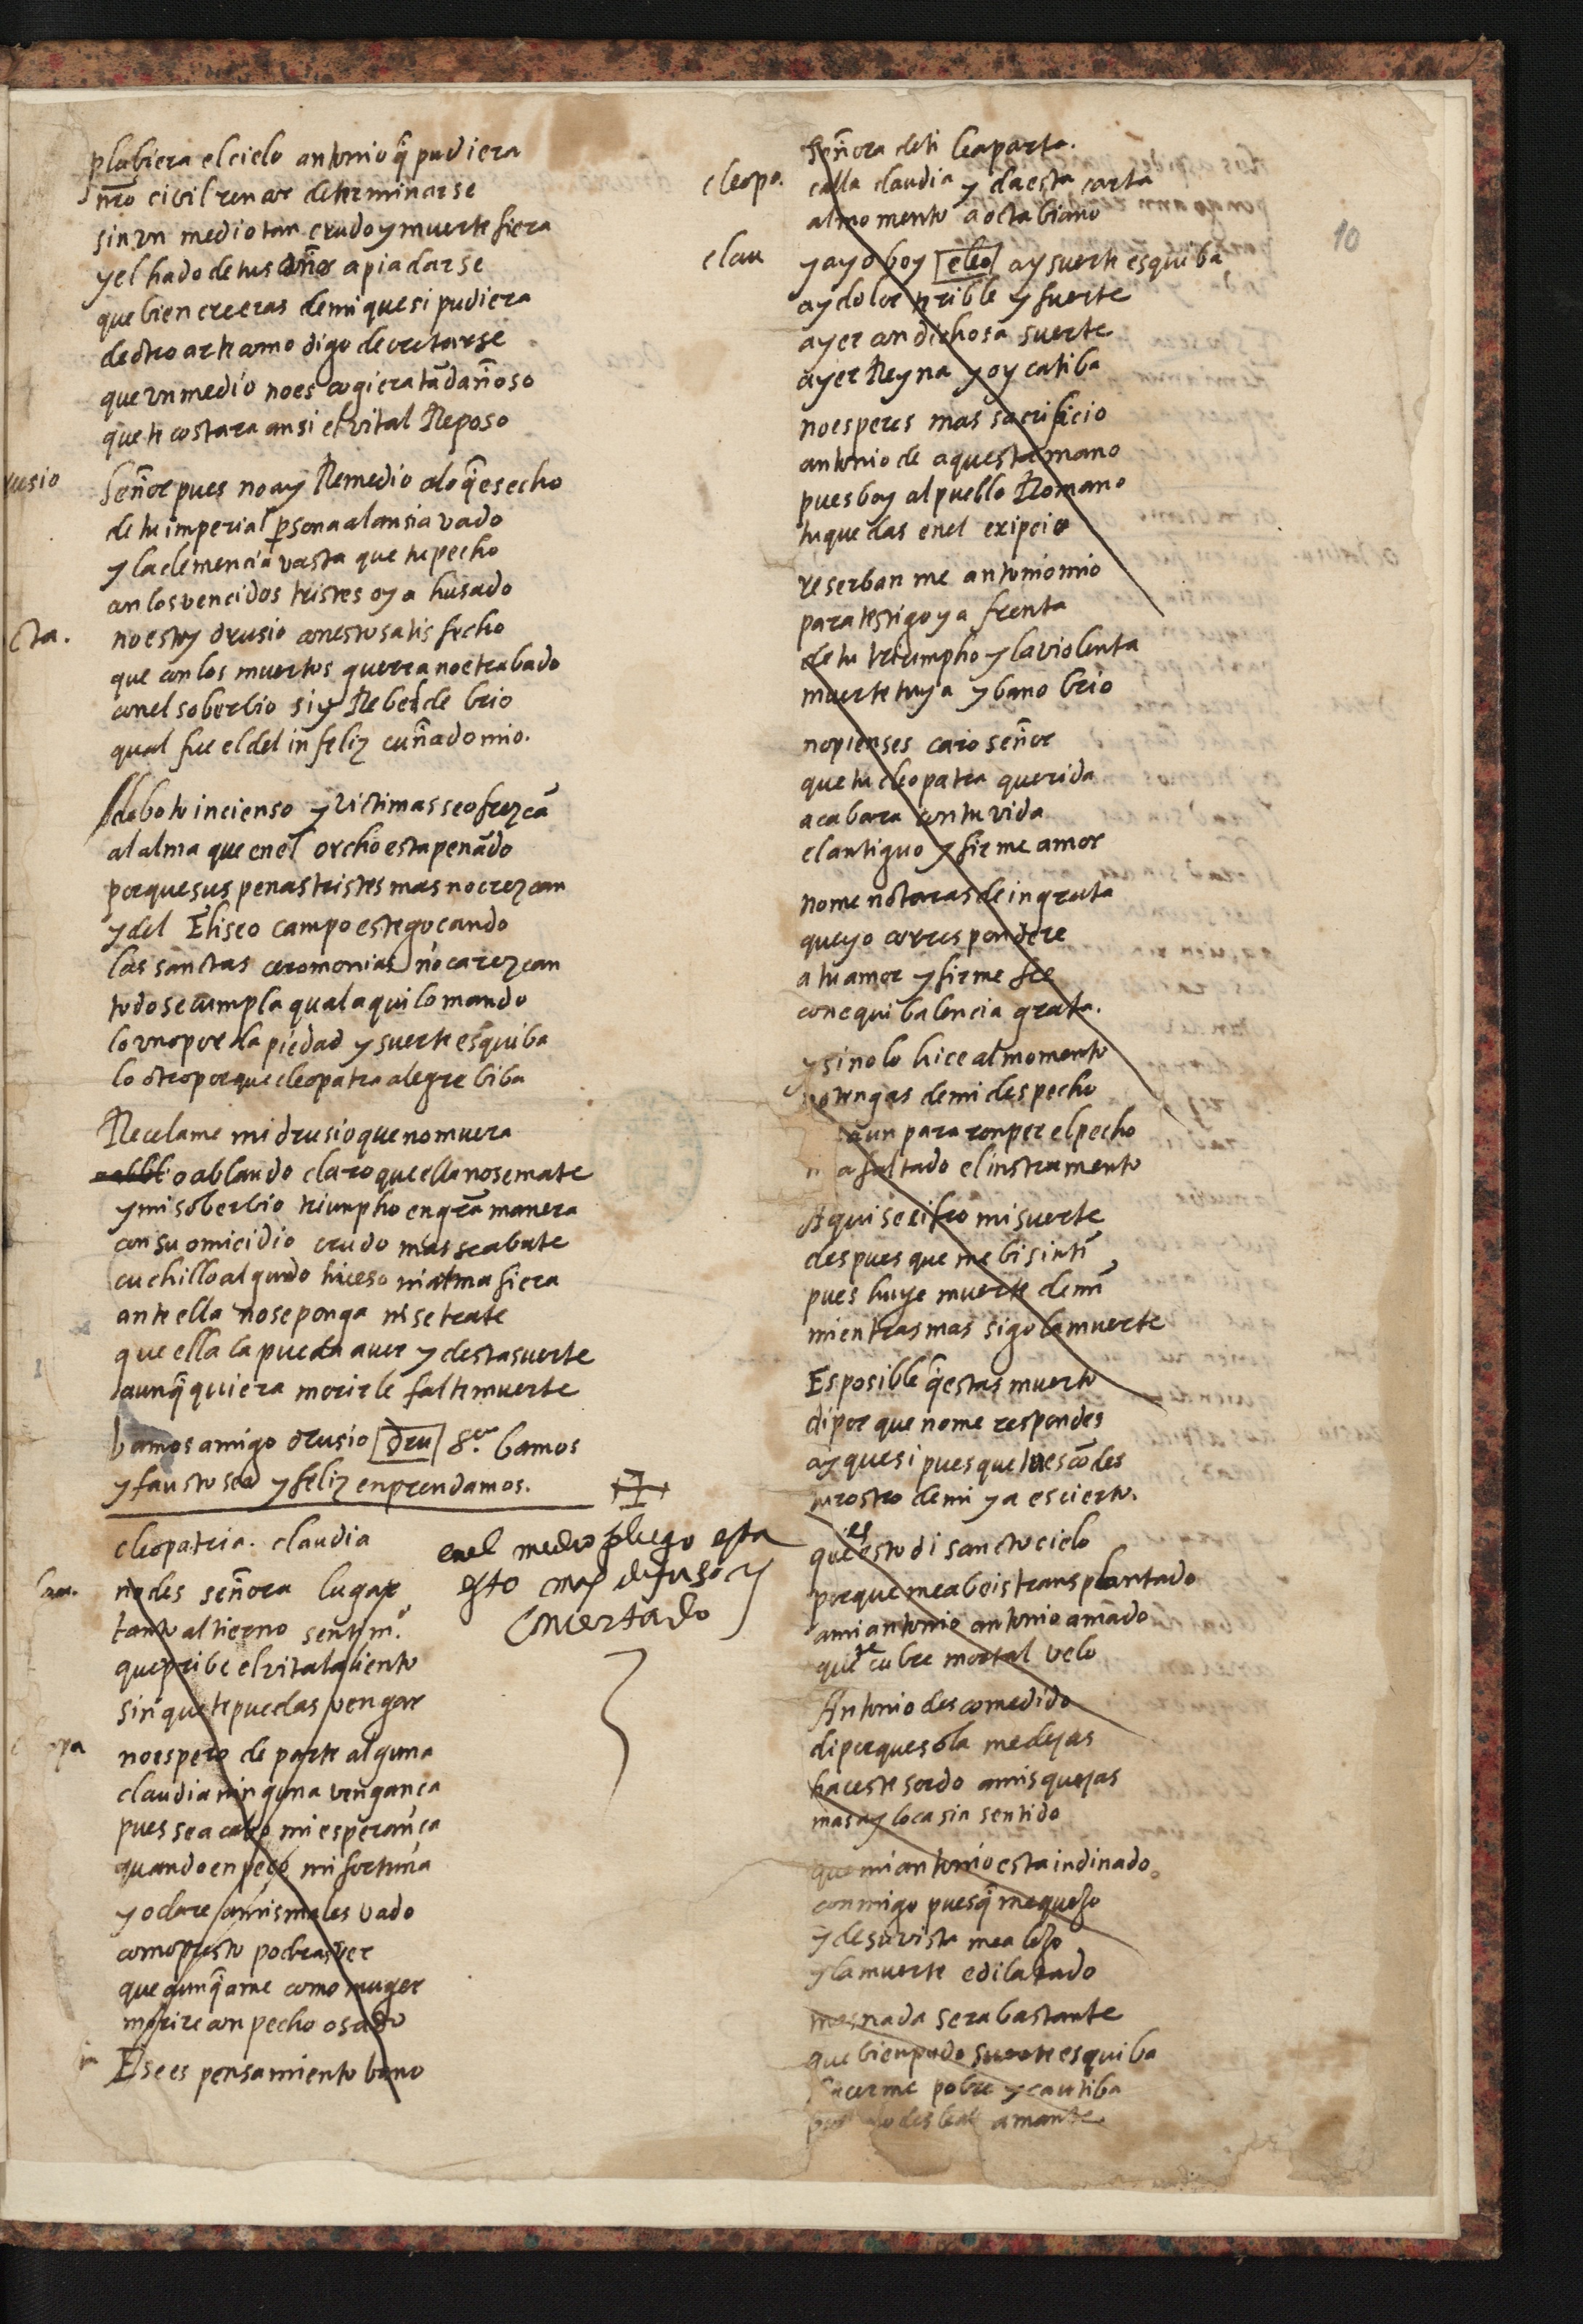 plubiera el cielo antonio q̃ pudiera
nr̃o cibil rencor determinarse
sin un medio tan crudo y muerte fiera
y el hado de tus años apiadarse
que bien creeras de mi que si pudiera
de otro arte como digo decretarse
que un medio no escogiera tã dañoso
que te costara ansi el vital Reposo
rusio
señor pues no ay Remedio alo q̃ es echo
de tu imperial psona al ansia vado
y la clemencia vasta que tu pecho
con los vencidos tristes oy a husado
cta.
no estoy drusio con esto satisfecho
que con los muertos guerra no e trabado
con el soberbio si y Rebelde brio
qual fue el del infeliz cuñado mio.
deboto incienso y victimas se ofrezcã
al alma que en el orcho esta penãdo
porque sus penas tristes mas no crezcan
y del Eliseo campo este gocando
las sanctas ceromonias no carezcan
todo se cumpla qual aqui lo mando
lo uno por la piedad y suerte esquiba
lo otro porque cleopatra alegre biba
Recelame mi drusio que no muera
o ablando claro que ella no se mate
y mi soberbio triumpho en grã manera
con su omicidio crudo mas se abate
cuchillo algundo hiceso ni alma fiera
ante ella no se ponga ni se trate
que ella la pueda auer y desta suerte
aunq̃ quiera morir le falte muerte
bamos amigo drusio dru s.or bamos
y fausto sea y feliz enprendamos.
cleopatria. claudia
en el medio pliego esta
esto mas difuso y
concertado
lau.
no des señora lugar
tanto al tierno sentim.o
que pribe el vital aliento
sin que te puedas vengar
opa
no espero de parte alguna
claudia ninguna vengança
pues se acabo mi esperança
quando enpeço mi fortuna
yo dare a mis males vado
como presto podras ver
que aunq̃ ame como muger
morire con pecho osado
Ese es pensamiento bano
10
señora de ti le aparta.
cleopa.
calla claudia y da esta carta
al momento a octabiano
clau
ya yo boy cleo ay suerte esquiba
ay dolor terrible y fuerte
ayer con dichosa suerte
ayer Reyna y oy catiba
no esperes mas sacrificio
antonio de aquesta mano
pues boy al pueblo Romano
tu quedas en el exipcio
reserban me antonio mio
para testigo y afrenta
de tu triumpho y la violenta
muerte tuya y bano brio
no pienses caro señor
que tu cleopatra querida
acabara con tu vida
el antiguo y firme amor
no me notaras de ingrata
que yo correspondere
a tu amor y firme fee
con equibalencia grata.
y si no lo hice al momento
no tengas de mi despecho
aun para ronper el pecho
a faltado el instrumento
Aqui se cifro mi suerte
despues que me bi sin ti
pues huye muerte de mi
mientras mas sigo la muerte
Es posible q̃ estas muerto
di por que no me respondes
ay que si pues que tu escõdes
tu rostro de mi ya es cierto.
que es esto di sancto cielo
porque me abeis transplantado
a mi antonio antonio amado
que te cubre mortal velo
Antonio descomedido
di porque sola me dejas
haceste sordo a mis quejas
mas ay loca sin sentido
que mi antonio esta indinado
conmigo pues q̃ me quejo
y de su vista me alejo
y la muerte e dilatado
mas nada sera bastante
que bien pudo suerte esquiba
hacerme pobre y cautiba
desleal amante.